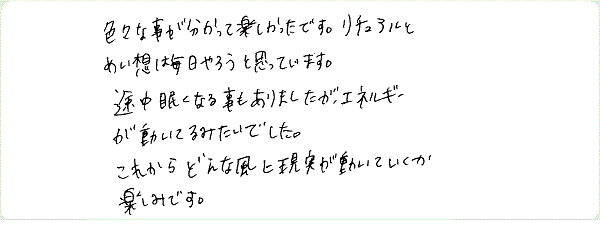 色々な事が分かって楽しかったです。リチュアルと
めい想は毎日やろうと思っています。
途中眠くなる事もありましたが、エネルギー
が動いてるみたいでした。
これからどんな風に現実が動いていくか
楽しみです。